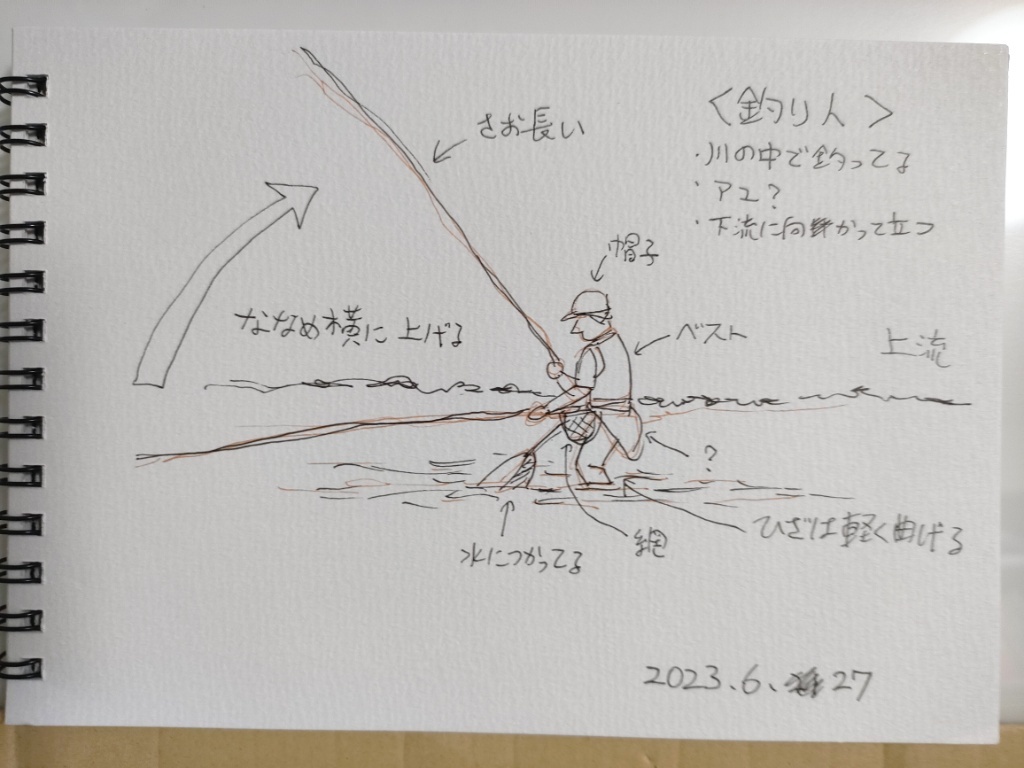 <釣り人>
・川の中で釣ってる
・アユ?
・下流に向かって立つ
さお長い
帽子
ななめ横に上げる
ベスト
上流
?
ひざは軽く曲げる
網
水につかってる
2023.6.27